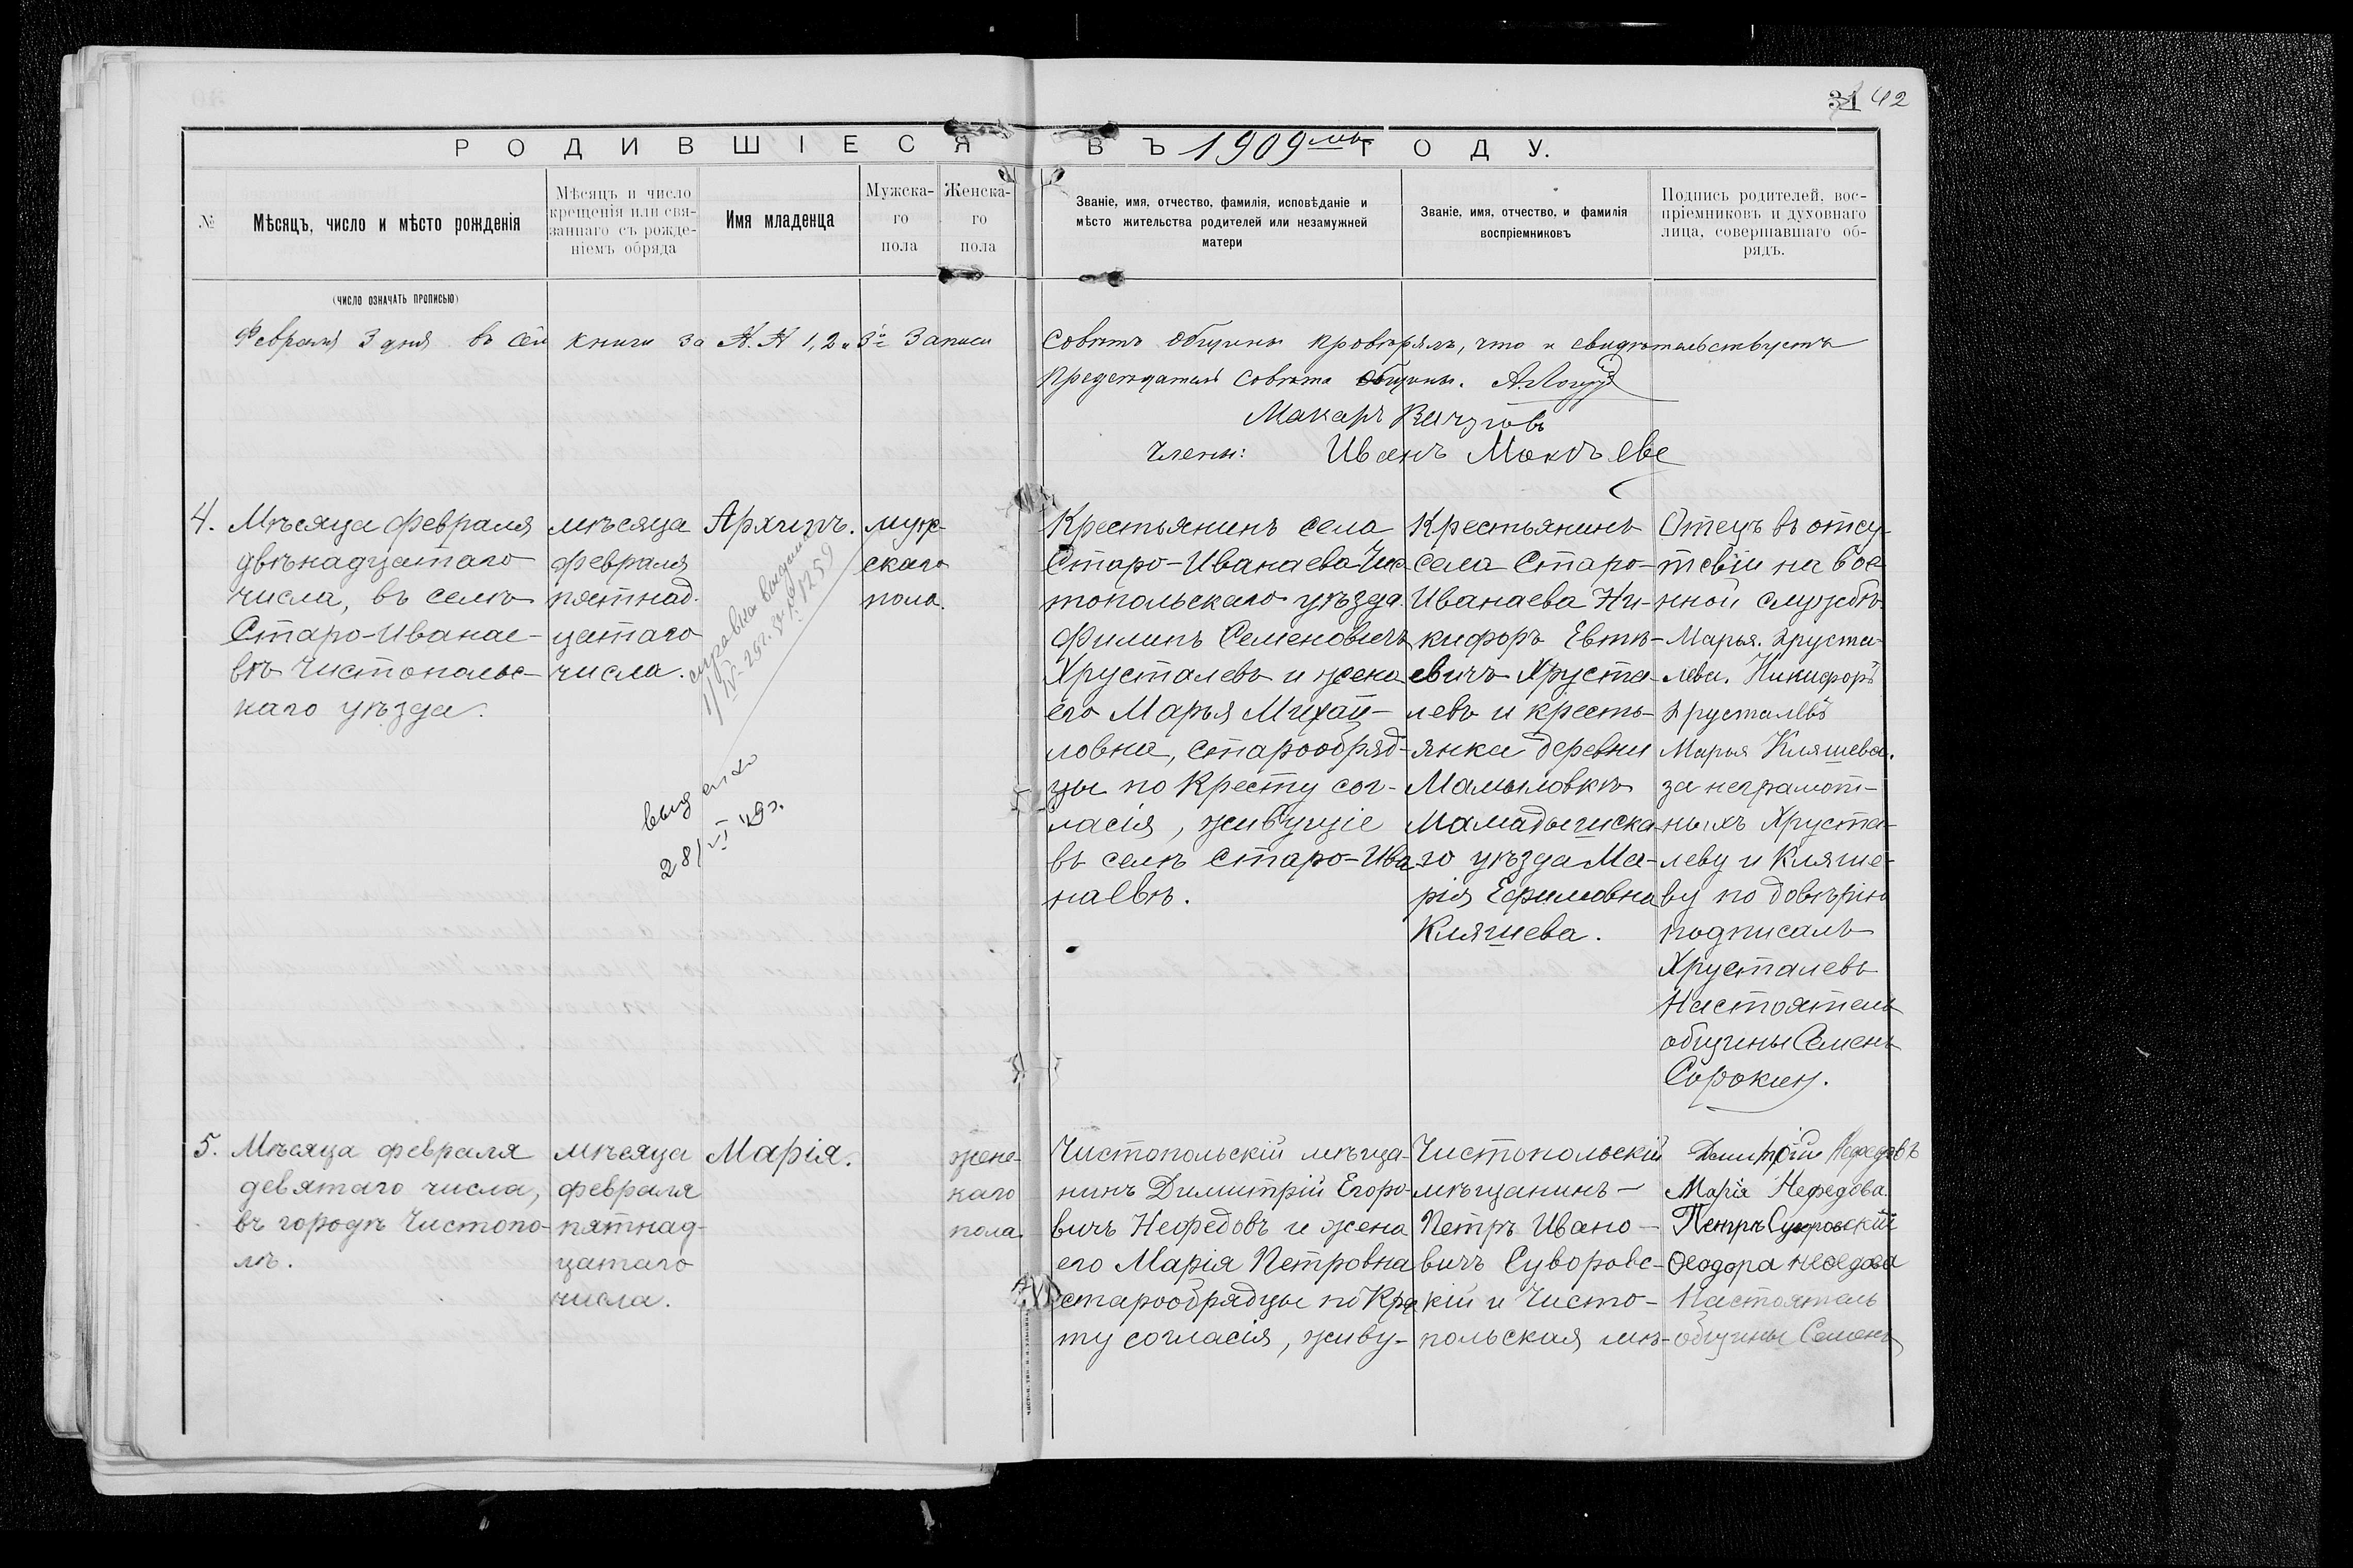 31 42
РОДИВШІЕСЯ ВЪ 1909мъ ГОДУ.
№
Мѣсяцъ, число и мѣсто рожденія
(число означать прописью)
Мѣсяцъ и число
крещенія или свя-
заннаго съ рожде-
ніемъ обряда
Имя младенца
Мужска-
го
пола
Женска-
го
пола
Званіе, имя, отчество, фамилія, исповѣданіе и
мѣсто жительства родителей или незамужней
матери
Званіе, имя, отчество, и фамилія
воспріемниковъ
Подпись родителей, вос-
пріемниковъ и духовнаго
лица, совершавшаго об-
рядъ.
Февраля 3 дня въ сей книги за № № 1, 2 и 3й Записи Совѣтъ общины провѣрялъ, что и свидѣтельствуетъ
Предсѣдатель Совѣта общины.
Макаръ
Члены: Иванъ
4.
Мѣсяца февраля
двѣнадцатаго
числа, въ селѣ
Старо-Иванае-
вѣ Чистопольс-
каго уѣзда.
мѣсяца
февраля
пятнад-
цатаго
числа.
Архипъ.
справка выдана
выдано
28/VI 49 г.
муж-
скаго
пола.
Крестьянинъ села
Старо-Иванаева Чис-
топольскаго уѣзда
Филипъ Семеновичъ
Хрусталевъ и жена
его Марья Михай-
ловна, старообряд-
цы по Кресту сог-
ласія, живущіе
въ селѣ Старо-Ива-
наевѣ.
Крестьянинъ
села Старо-
Иванаева Ни-
кифоръ Евтѣ-
евичъ Хруста-
левъ и кресть-
янка деревни
Мамыловкѣ
Мамадышска-
го уѣзда Ма-
рія Ефимовна
Кляшева.
Отецъ въ отсу-
тсвіи на вое-
нной службѣ
Марья. Хруста-
лева. Никифоръ
Хрусталевъ
Марья Кляшева.
за неграмот-
ныхъ Хруста-
леву и Кляше-
ву по довѣрію
подписалъ
Хрусталевъ
Настоятель
общины Семенъ
Сорокин.
5.
Мѣсяца февраля
девятаго числа,
въ городѣ Чистопо-
лѣ.
мѣсяца
февраля
пятнад-
цатаго
числа.
Марія.
женс-
каго
пола.
Чистопольскій мѣща-
нинъ Димитрій Егоро-
вичъ Нефедовъ и жена
его Марія Петровна
старообрядцы по Крес-
ту согласія, живу-
Чистопольскій
мѣщанинъ-
Петръ Ивано-
вичъ Суворовс-
кій и Чисто-
польская мѣ-
Димитрій Нефедовъ
Марія Нефедова.
Петръ Суворовскій
Ѳеодора
Настоятель
общины Семенъ